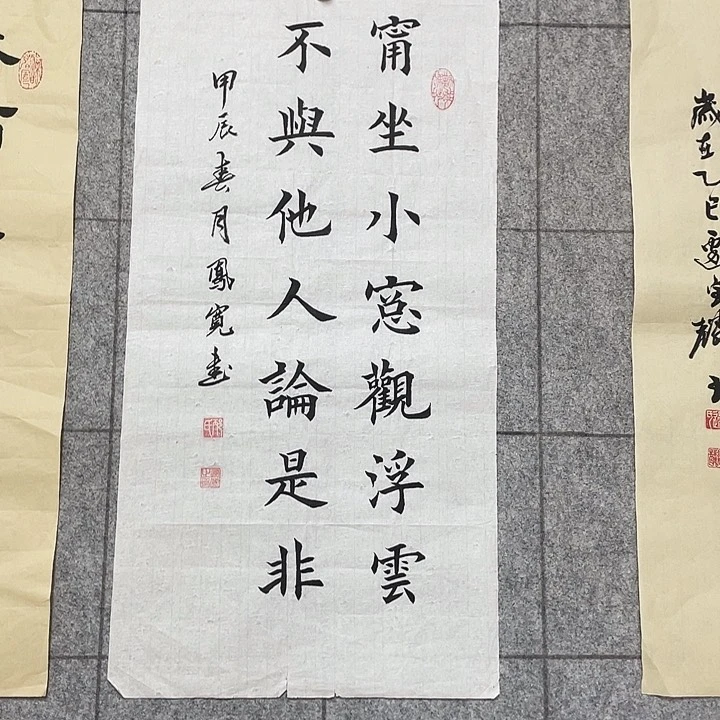 甯坐小窓觀浮雲
不與他人論是非
甲辰春月鳳寬書
歲在乙巳夏